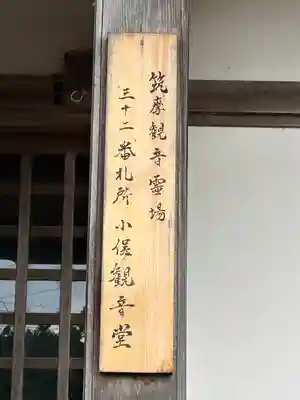 筑摩観音霊場
三十二番札所小俣観音堂